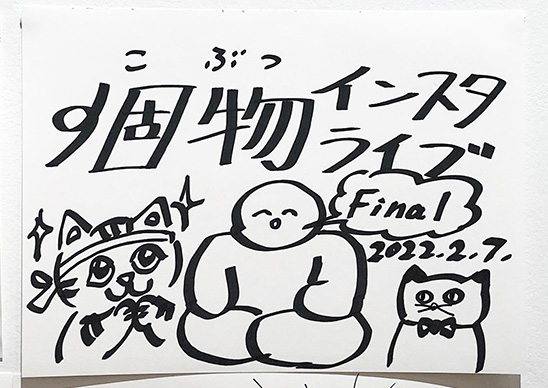 こ ぶつ
個物
インスタ
ライブ
Final
2022.2.7.